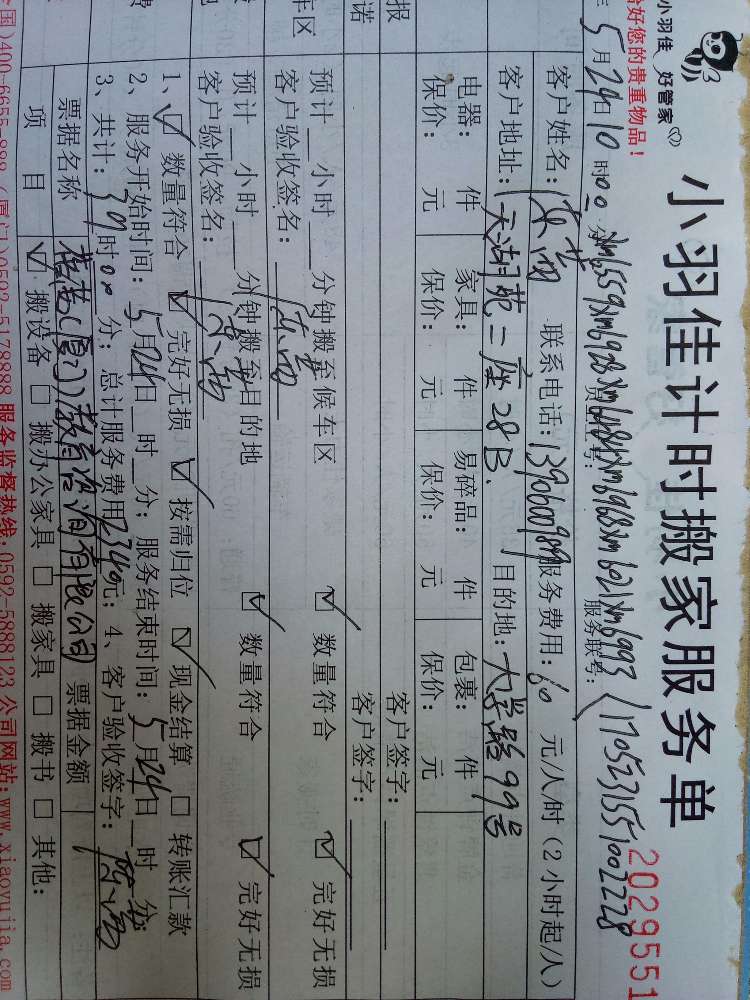 小羽佳 好管家
小羽佳计时搬家服务单
给好您的贵重物品！
2029551
5月24日10时00分 xm6559xm6928xm6484xm6968xm6021xm6993 服务联号： 1705231551002228
客户姓名： 联系电话：13906009819 服务费用：60 元/人/时（2小时起/人）
客户地址：天湖苑二座28B. 目的地：大学路99号
电器： 件 家具： 件 易碎品： 件 包裹： 件
保价： 元 保价： 元 保价： 元 保价： 元
报 客户签字：
诺 客户签字：
车区 预计 小时 分钟搬至候车区 ☑ 数量符合 ☑ 完好无损
客户验收签名：
预计 小时 分钟搬至目的地 ☑ 数量符合 ☑ 完好无损
客户验收签名：
1、☑ 数量符合 ☑ 完好无损 ☑ 按需归位 ☑ 现金结算 □ 转账汇款
2、服务开始时间：5月24日 时 分；服务结束时间：5月24日 时 分
费 3、共计：39时00分；总计服务费用2340元；4、客户验收签字：
票据名称 (厦门)教育咨询有限公司 票据金额
项目 ☑ 搬设备 □ 搬办公家具 □ 搬家具 □ 搬书 □ 其他：
国)400-6655-888 (厦门)0592-5178888 服务监督热线:0592-5888123 公司网站:www.xiaoyujia.com